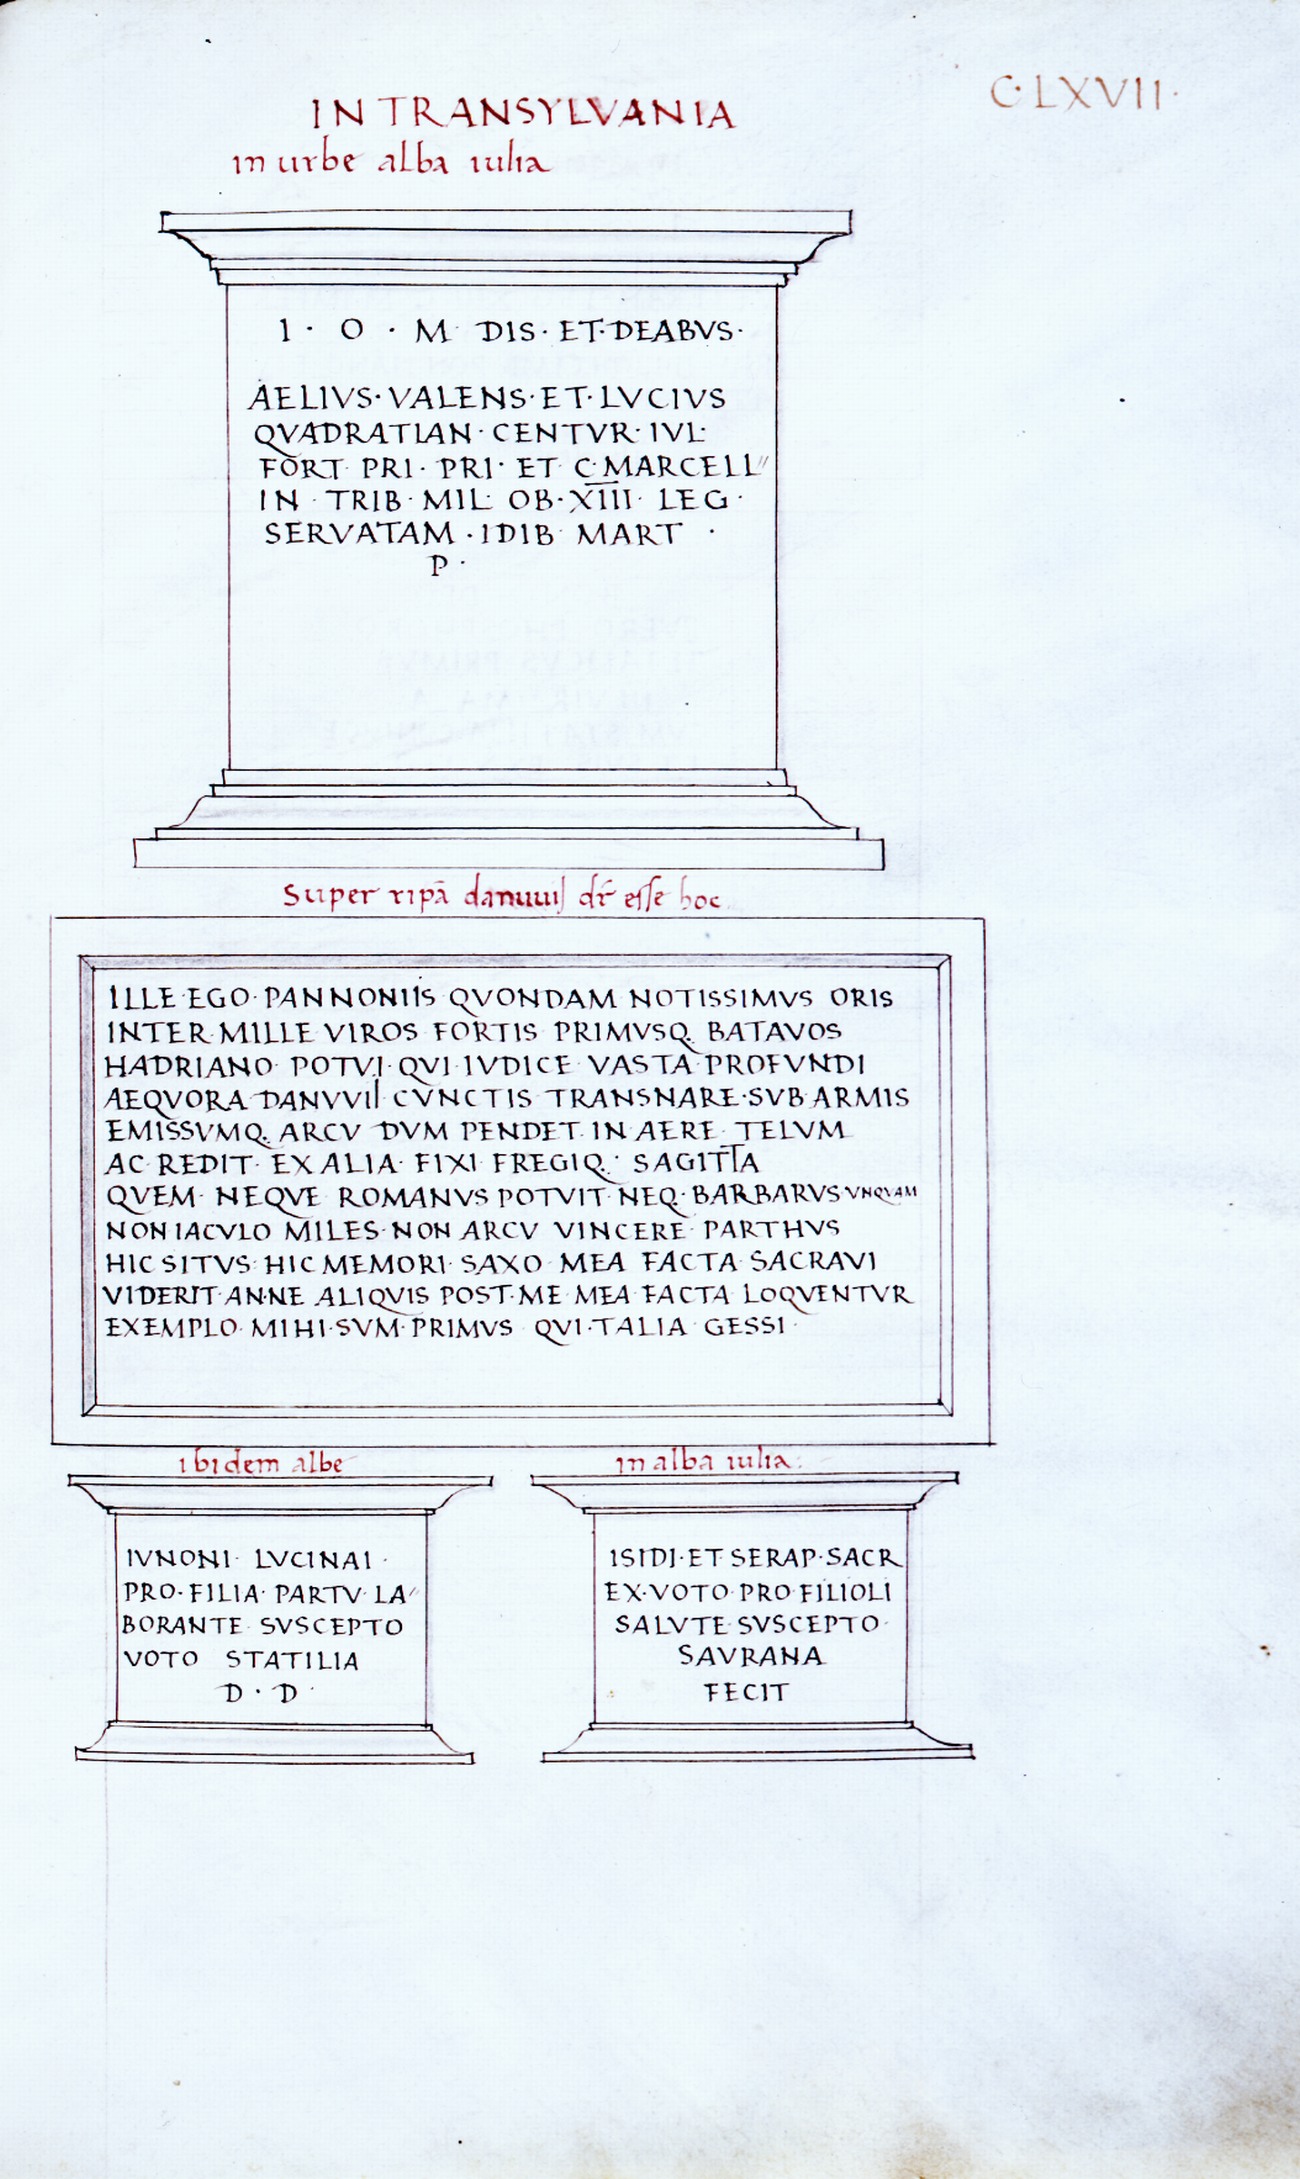 C·LXVII·
IN TRANSYLVANIA
in urbe alba iulia
I · O · M · DIS · ET · DEABVS ·
AELIVS · VALENS · ET · LVCIVS
QVADRATIAN · CENTVR · IVL ·
FORT · PRI · PRI · ET C · MARCELL//
IN · TRIB · MIL · OB · X̅I̅I̅I̅ · LEG ·
SERVATAM · IDIB · MART ·
P ·
Super ripā danuuij dr̄ esse hoc
ILLE · EGO · PANNONIIS QVONDAM NOTISSIMVS ORIS
INTER · MILLE VIROS FORTIS PRIMVSQ. BATAVOS
HADRIANO · POTVI · QVI · IVDICE VASTA · PROFVNDI
AEQVORA DANVVII CVNCTIS TRANSNARE · SVB ARMIS
EMISSVMQ. ARCV DVM PENDET IN AERE TELVM
AC REDIT · EX ALIA · FIXI FREGIQ. · SAGITTA
QVEM · NEQVE ROMANVS POTVIT · NEQ · BARBARVS · VNQVAM
NON IACVLO MILES · NON ARCV VINCERE · PARTHVS
HIC SITVS · HIC MEMORI · SAXO · MEA FACTA · SACRAVI
VIDERIT · AN · NE ALIQVIS POST · ME MEA FACTA LOQVENTVR
EXEMPLO · MIHI · SVM · PRIMVS QVI · TALIA GESSI ·
ibidem albe
IVNONI · LVCINAI ·
PRO · FILIA · PARTV · LA//
BORANTE SVSCEPTO
VOTO STATILIA
D · D ·
in alba iulia:
ISIDI · ET SERAP · SACR
EX · VOTO PRO FILIOLI
SALVTE SVSCEPTO ·
SAVRANA
FECIT